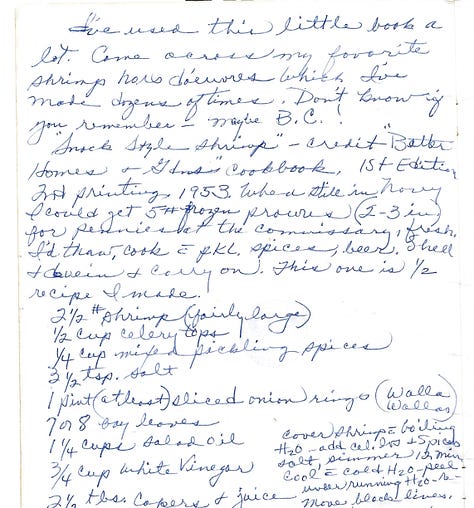 I've used this little book a
lot. Came across my favorite
shrimp hors d'oeuvres which I've
made dozens of times. Don't know if
you remember - maybe B.C.!
"Snack Style Shrimp" - credit "Better
Homes + Gdns" Cookbook, 1st Edition
2nd printing, 1953. When still in Navy
I could get 5# frozen prawns (2-3 in)
for pennies at the commissary, fresh.
I'd thaw, cook c̄ pkl. spices, beer. Shell
+ devein + carry on. This one is 1/2
recipe I made.
2 1/2 # shrimp (fairly large)
1/2 cup celery tops
1/4 cup mixed pickling spices
3 1/2 tsp. salt
1 pint (at least) sliced onion rings (Walla Wallas)
7 or 8 bay leaves
1 1/4 cups salad oil
3/4 cup white vinegar
2 1/2 tbs. capers & juice
cover shrimp c̄ boiling
H2O - add cel. + spices
salt, simmer 12 min
Cool c̄ cold H2O - peel -
under running H2O - re-
move black lines.